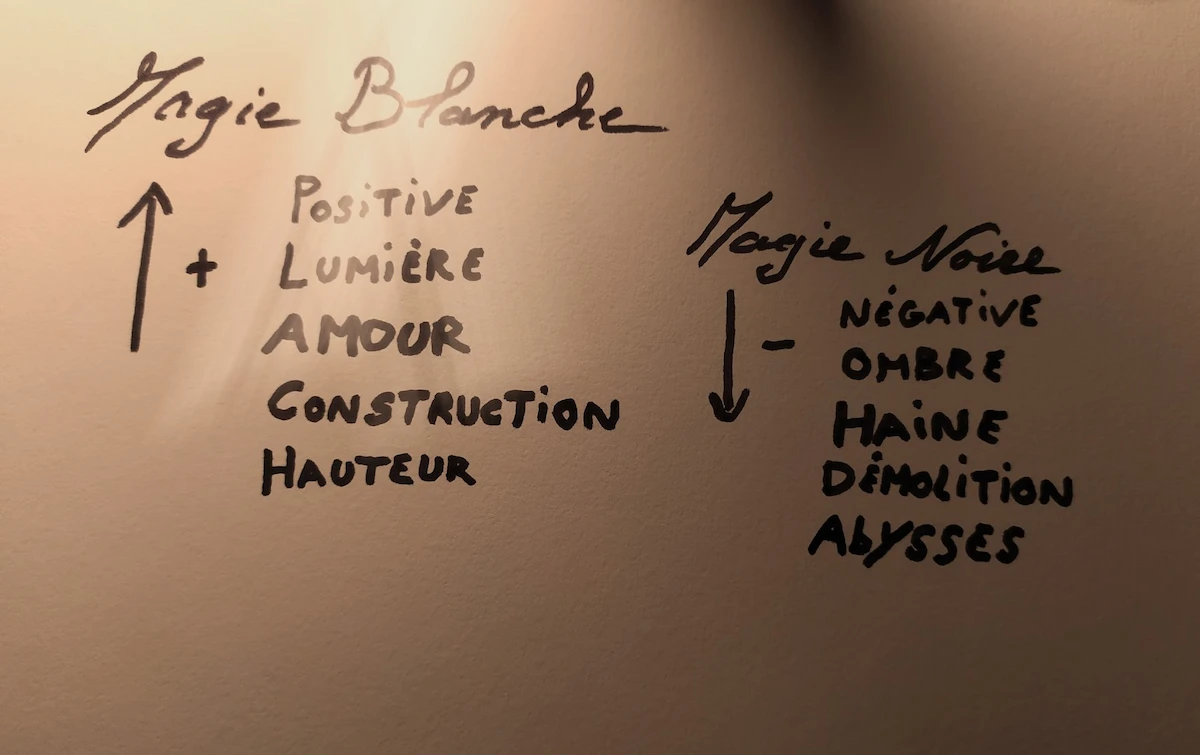 Magie Blanche
+
Positive
Lumière
AMOUR
Construction
Hauteur
Magie Noire
-
Négative
OMBRE
Haine
Démolition
Abysses